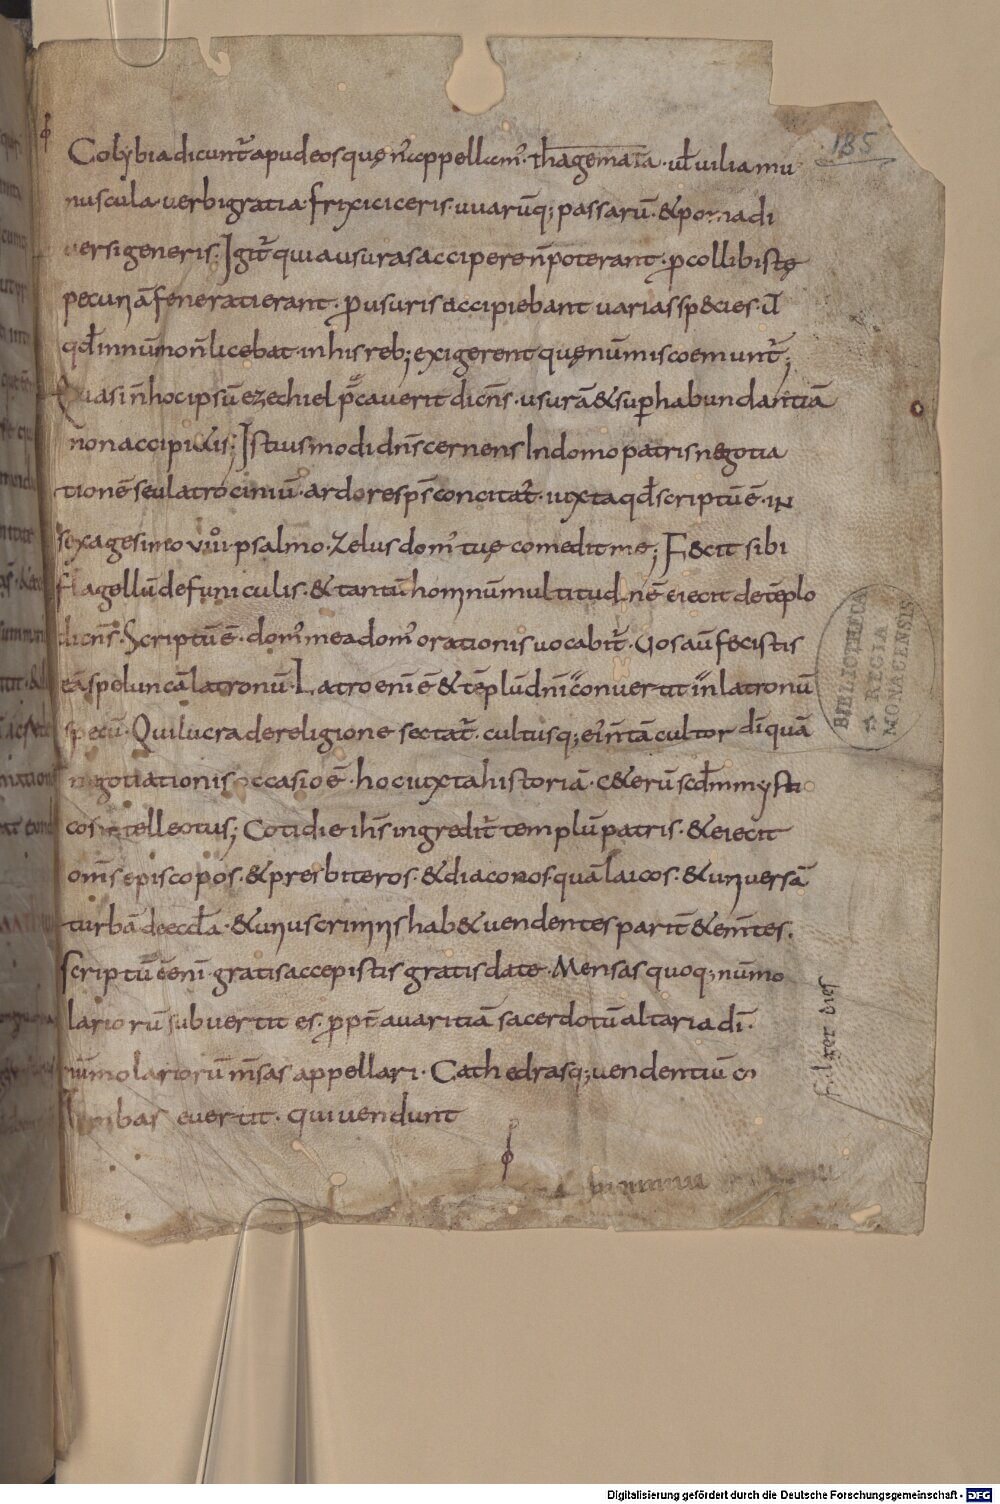 185
Colybia dicunt̄ apud eos quę n̄ appellam̄. thagemata. ul̄ uilia mu
nuscula. uerbi gratia. frixi ciceris. uuarūq; passarū. & poma di
uersi generis. Igit̄ qui a usuras accipere n̄ poterant. p collibistę
pecuniā feneratierant. p usuris accipiebant uarias sp&cies. ut̄
qd̄ in nūmo n̄ licebat. in his reb; exigerent quę nūmis coemunt̄;
Quasi n̄ hoc ipsū ezechiel p̄cauerit dicēns. usurā & suphabundantiā
non accipi&is; Istius modi dn̄s cernens In domo patris negotia
tionē seu latrociniū. ardore sps̄ concitat̄. iuxta qd̄ scriptū ē. iN
sexagesimo uiiii psalmo. Zelus dom̄ tuę comedit me; F&cit sibi
flagellū de funiculis. & tantū hominū multitudinē eiecit de tēplo
dicēns. Scriptū ē. dom̄ mea dom̄ orationis uocabit̄. Uos aū fecistis
eā speluncā latronū. Latro enī ē & tēplū dnī conuertit in latronū
specū. Qui lucra de religione sectat̄. cultusq; ei n̄ tā cultor dī quā
negotiationis occasio ē. hoc iuxta historiā. c&erū scd̄m mysti
cos intellectus; Cotidie ihs̄ ingredit̄ templū patris. & eiecit
om̄s episcopos. & presbiteros. & diaconos. quā laicos. & uniuersā
turbā de eccl̄a. & unius criminis hab& uendentes parit̄ & em̄tes.
scriptū ē enī. gratis accepistis gratis date. Mensas quoq; nūmo
lariorū subuertit es. ppt̄ auaritiā sacerdotū altaria dī.
nūmolariorū m̄sas appellari. Cathedrasq; uendentiū co
lumbas euertit. qui uendunt
BIBLIOTHECA
REGIA
MONACENSIS
Digitalisierung gefördert durch die Deutsche Forschungsgemeinschaft - DFG